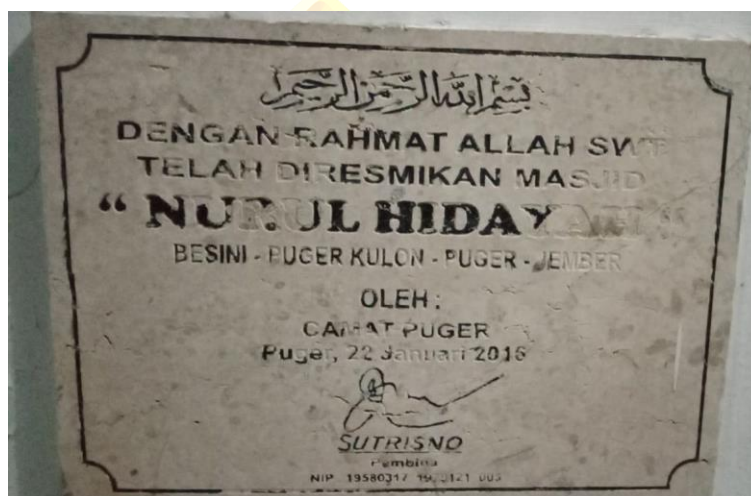 بسم الله الرحمن الرحيم
DENGAN RAHMAT ALLAH SWT
TELAH DIRESMIKAN MASJID
“ NURUL HIDAYAH ”
BESINI - PUGER KULON - PUGER - JEMBER
OLEH :
CAMAT PUGER
Puger, 22 Januari 2016
SUTRISNO
Pembina
NIP 19580317